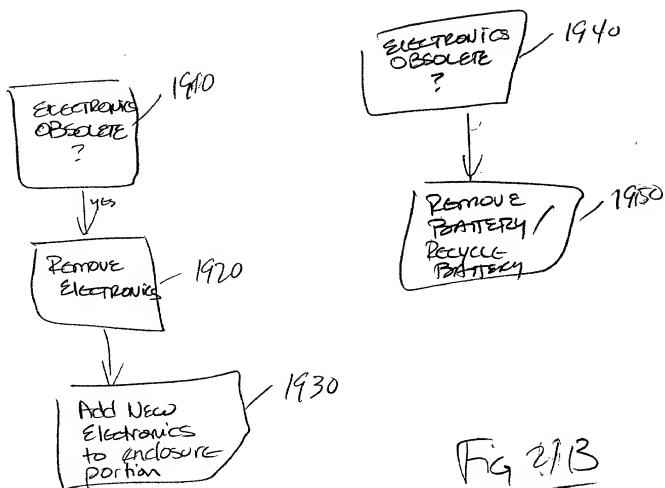 ELECTRONICS
OBSOLETE
?
1910
yes
REMOVE
ELECTRONICS
1920
Add New
Electronics
to enclosure
portion
1930
ELECTRONICS
OBSOLETE
?
1940
REMOVE
BATTERY/
RECYCLE
BATTERY
1950
Fig 21B